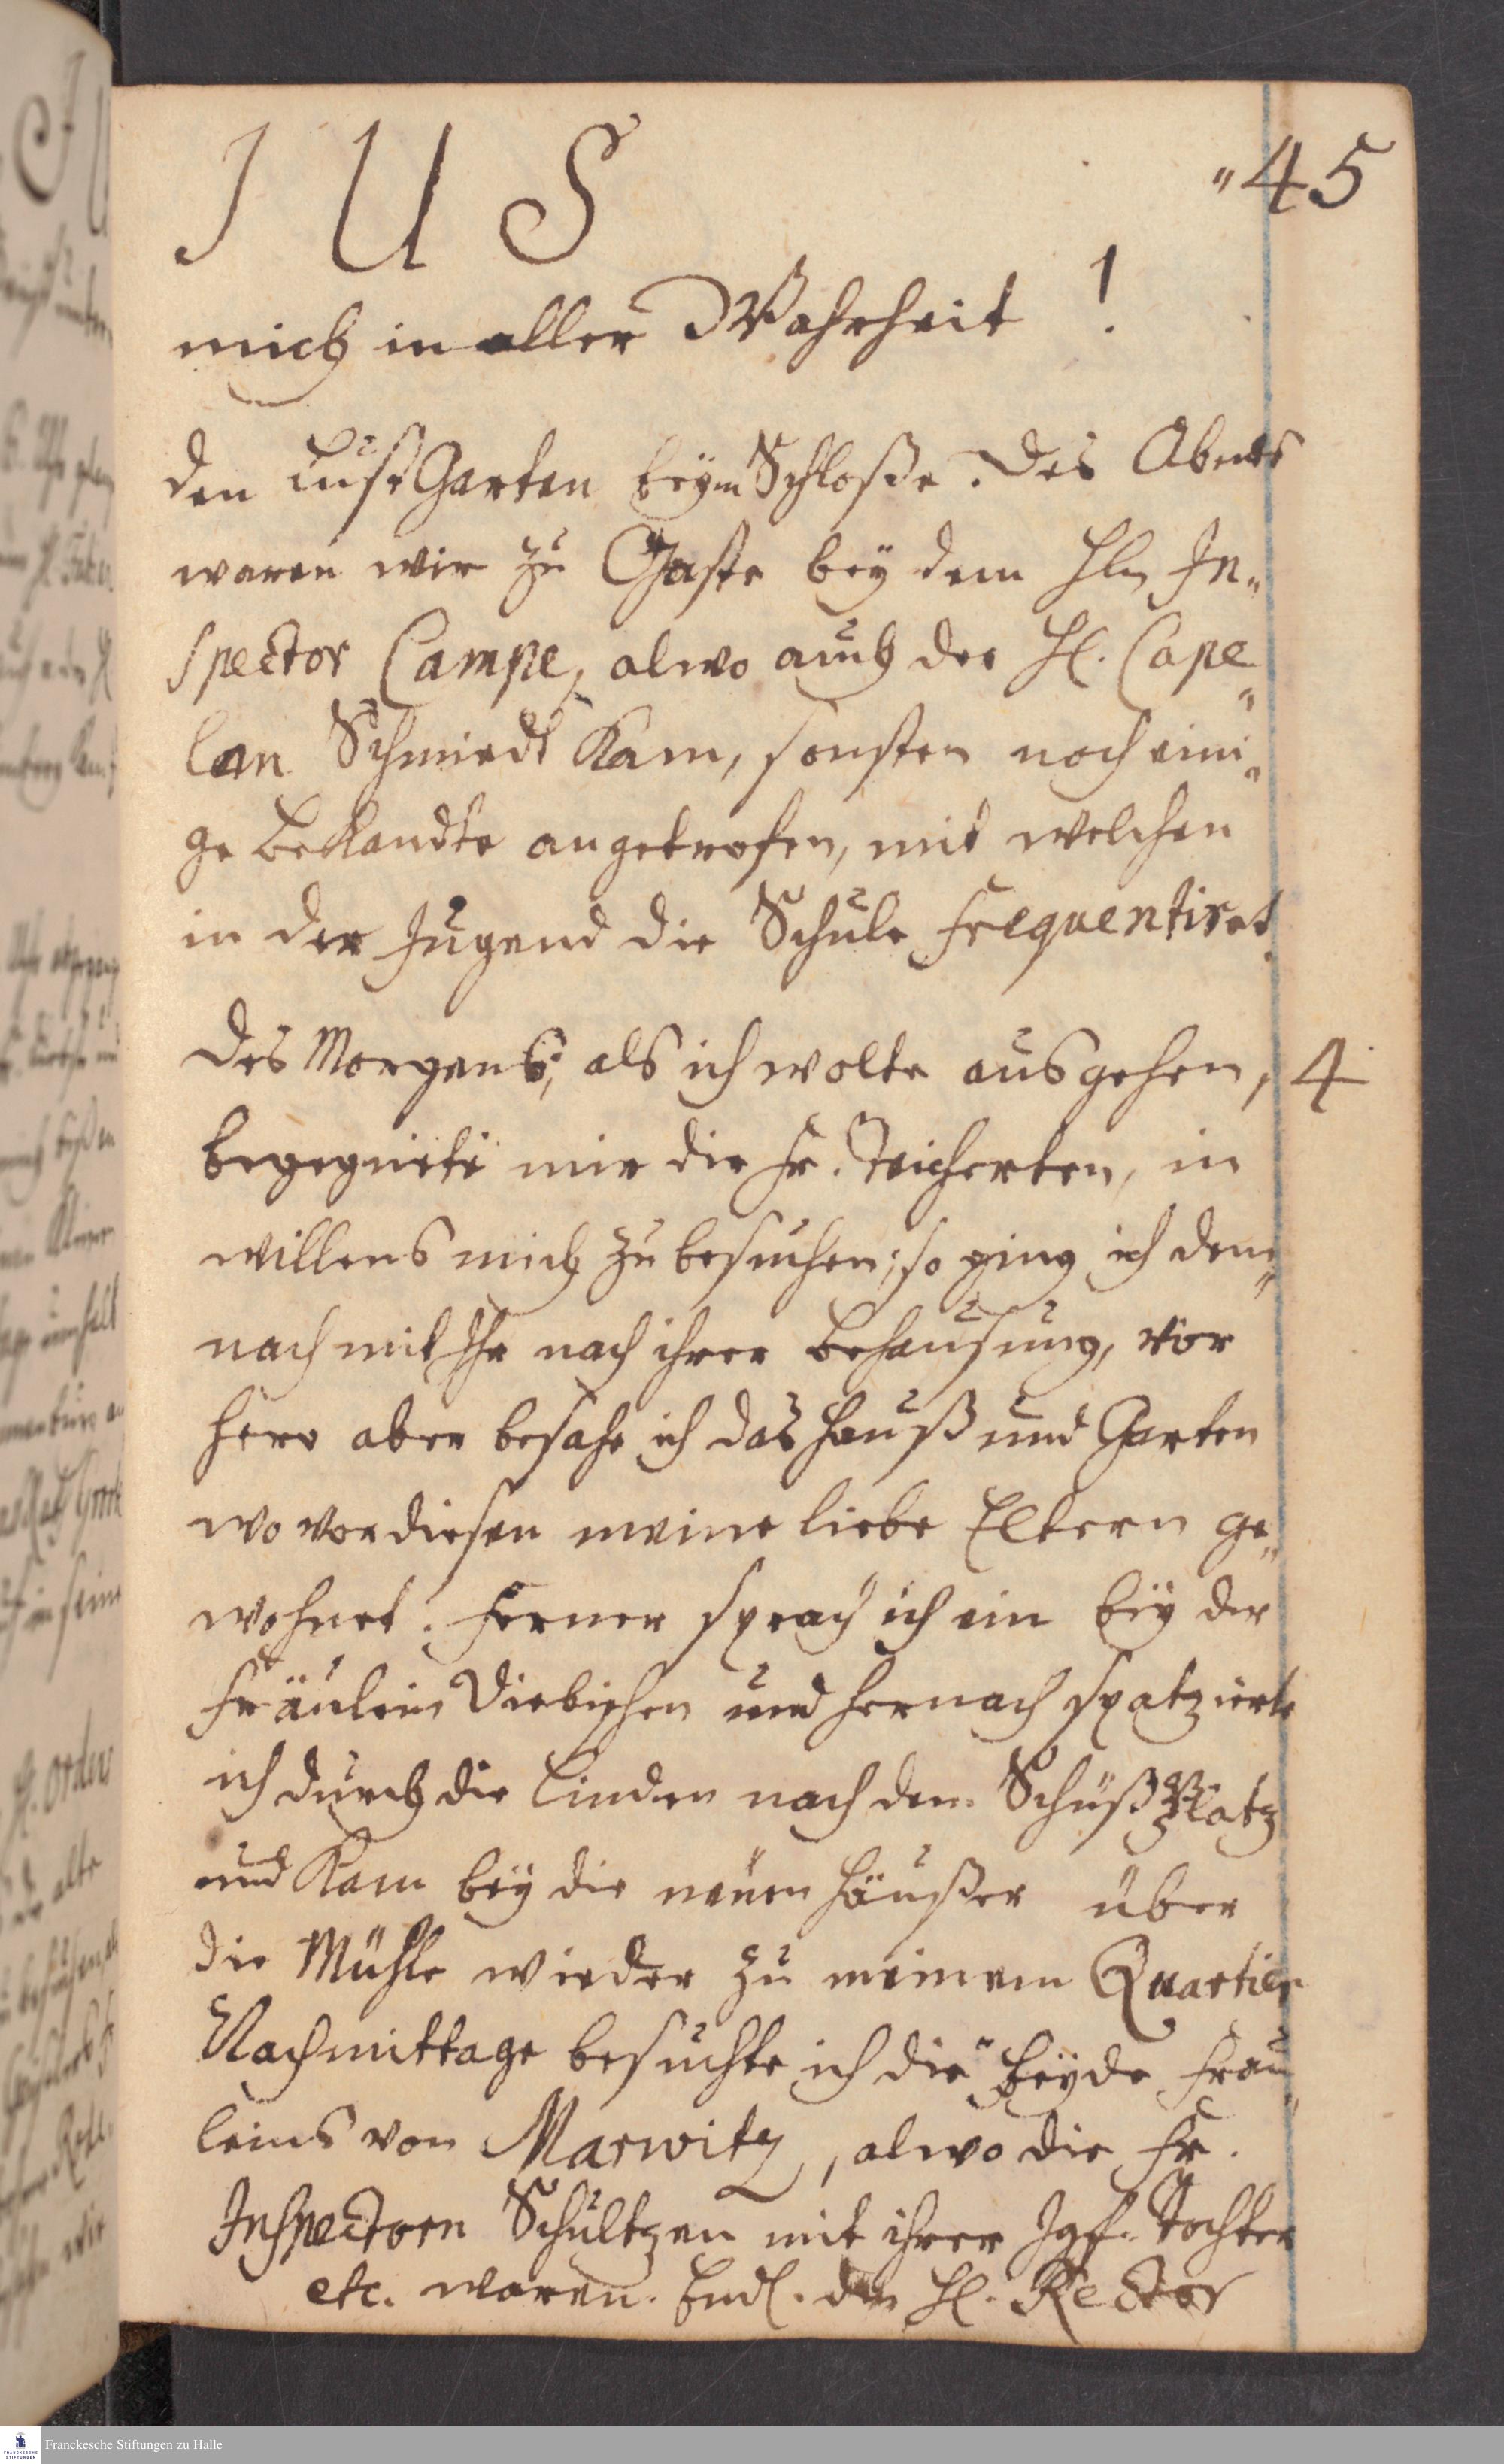 "45
J U S
mich in aller Wahrheit !
den LustGarten beÿm Schloße. Des Abends
waren wir zu Gaste beÿ dem Hln In„
spector Campe, alwo auch der Hl. Cape„
lan Schmiedt Kam, sonsten noch eini„
ge bekandte angetrofen, mit welchen
in der Jugend die Schule frequentiret.
Des Morgens, als ich wolte ausgehen, 4
begegnete mir die Fr. Teicherten, in
willens mich zu besuchen; so ging ich dem„
nach mit Ihr nach ihrer behausung, vor
hero aber besahe ich das Hauß und Garten
wo vor diesen meine liebe Eltern ge„
wohnet. Ferner sprach ich ein beÿ der
Fräulein Diebischen und hernach spatzierte
ich durch die Linden nach dem Schüß Platz
und Kam beÿ die neuen Häußer über
die Mühle wieder zu meinem Quartier
Nachmittage besuchte ich die beÿde Frau„
leins von Marwitz, alwo die Fr.
Inspectorn Schultzen mit ihrer Jgfr. Tochter
etc. waren. Endl. den Hl. Rector
Franckesche Stiftungen zu Halle